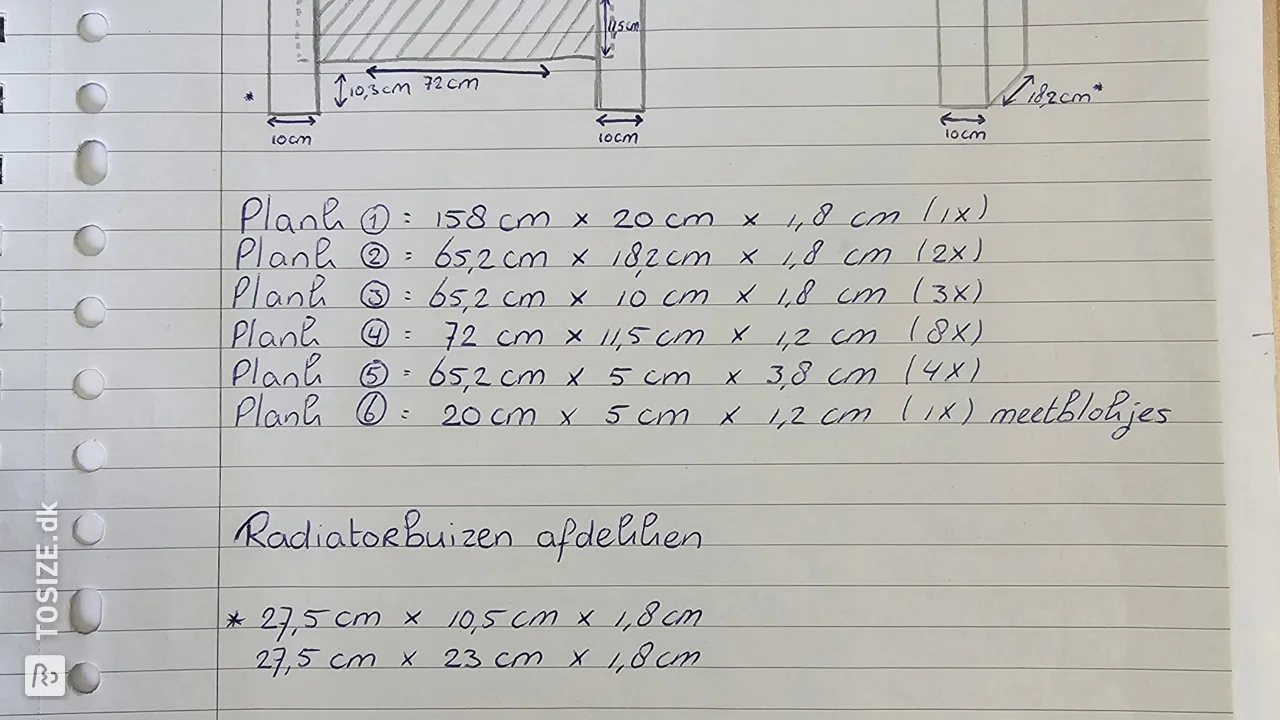 11,5cm
10,3cm 72cm
* 18,2cm*
10cm 10cm 10cm
Plank ① = 158 cm x 20 cm x 1,8 cm (1x)
Plank ② = 65,2 cm x 18,2 cm x 1,8 cm (2x)
Plank ③ = 65,2 cm x 10 cm x 1,8 cm (3x)
Plank ④ = 72 cm x 11,5 cm x 1,2 cm (8x)
Plank ⑤ = 65,2 cm x 5 cm x 3,8 cm (4x)
Plank ⑥ = 20 cm x 5 cm x 1,2 cm (1x) meetblokjes
Radiatorbuizen afdekken
* 27,5 cm x 10,5 cm x 1,8 cm
27,5 cm x 23 cm x 1,8 cm
TOSIZE.dk